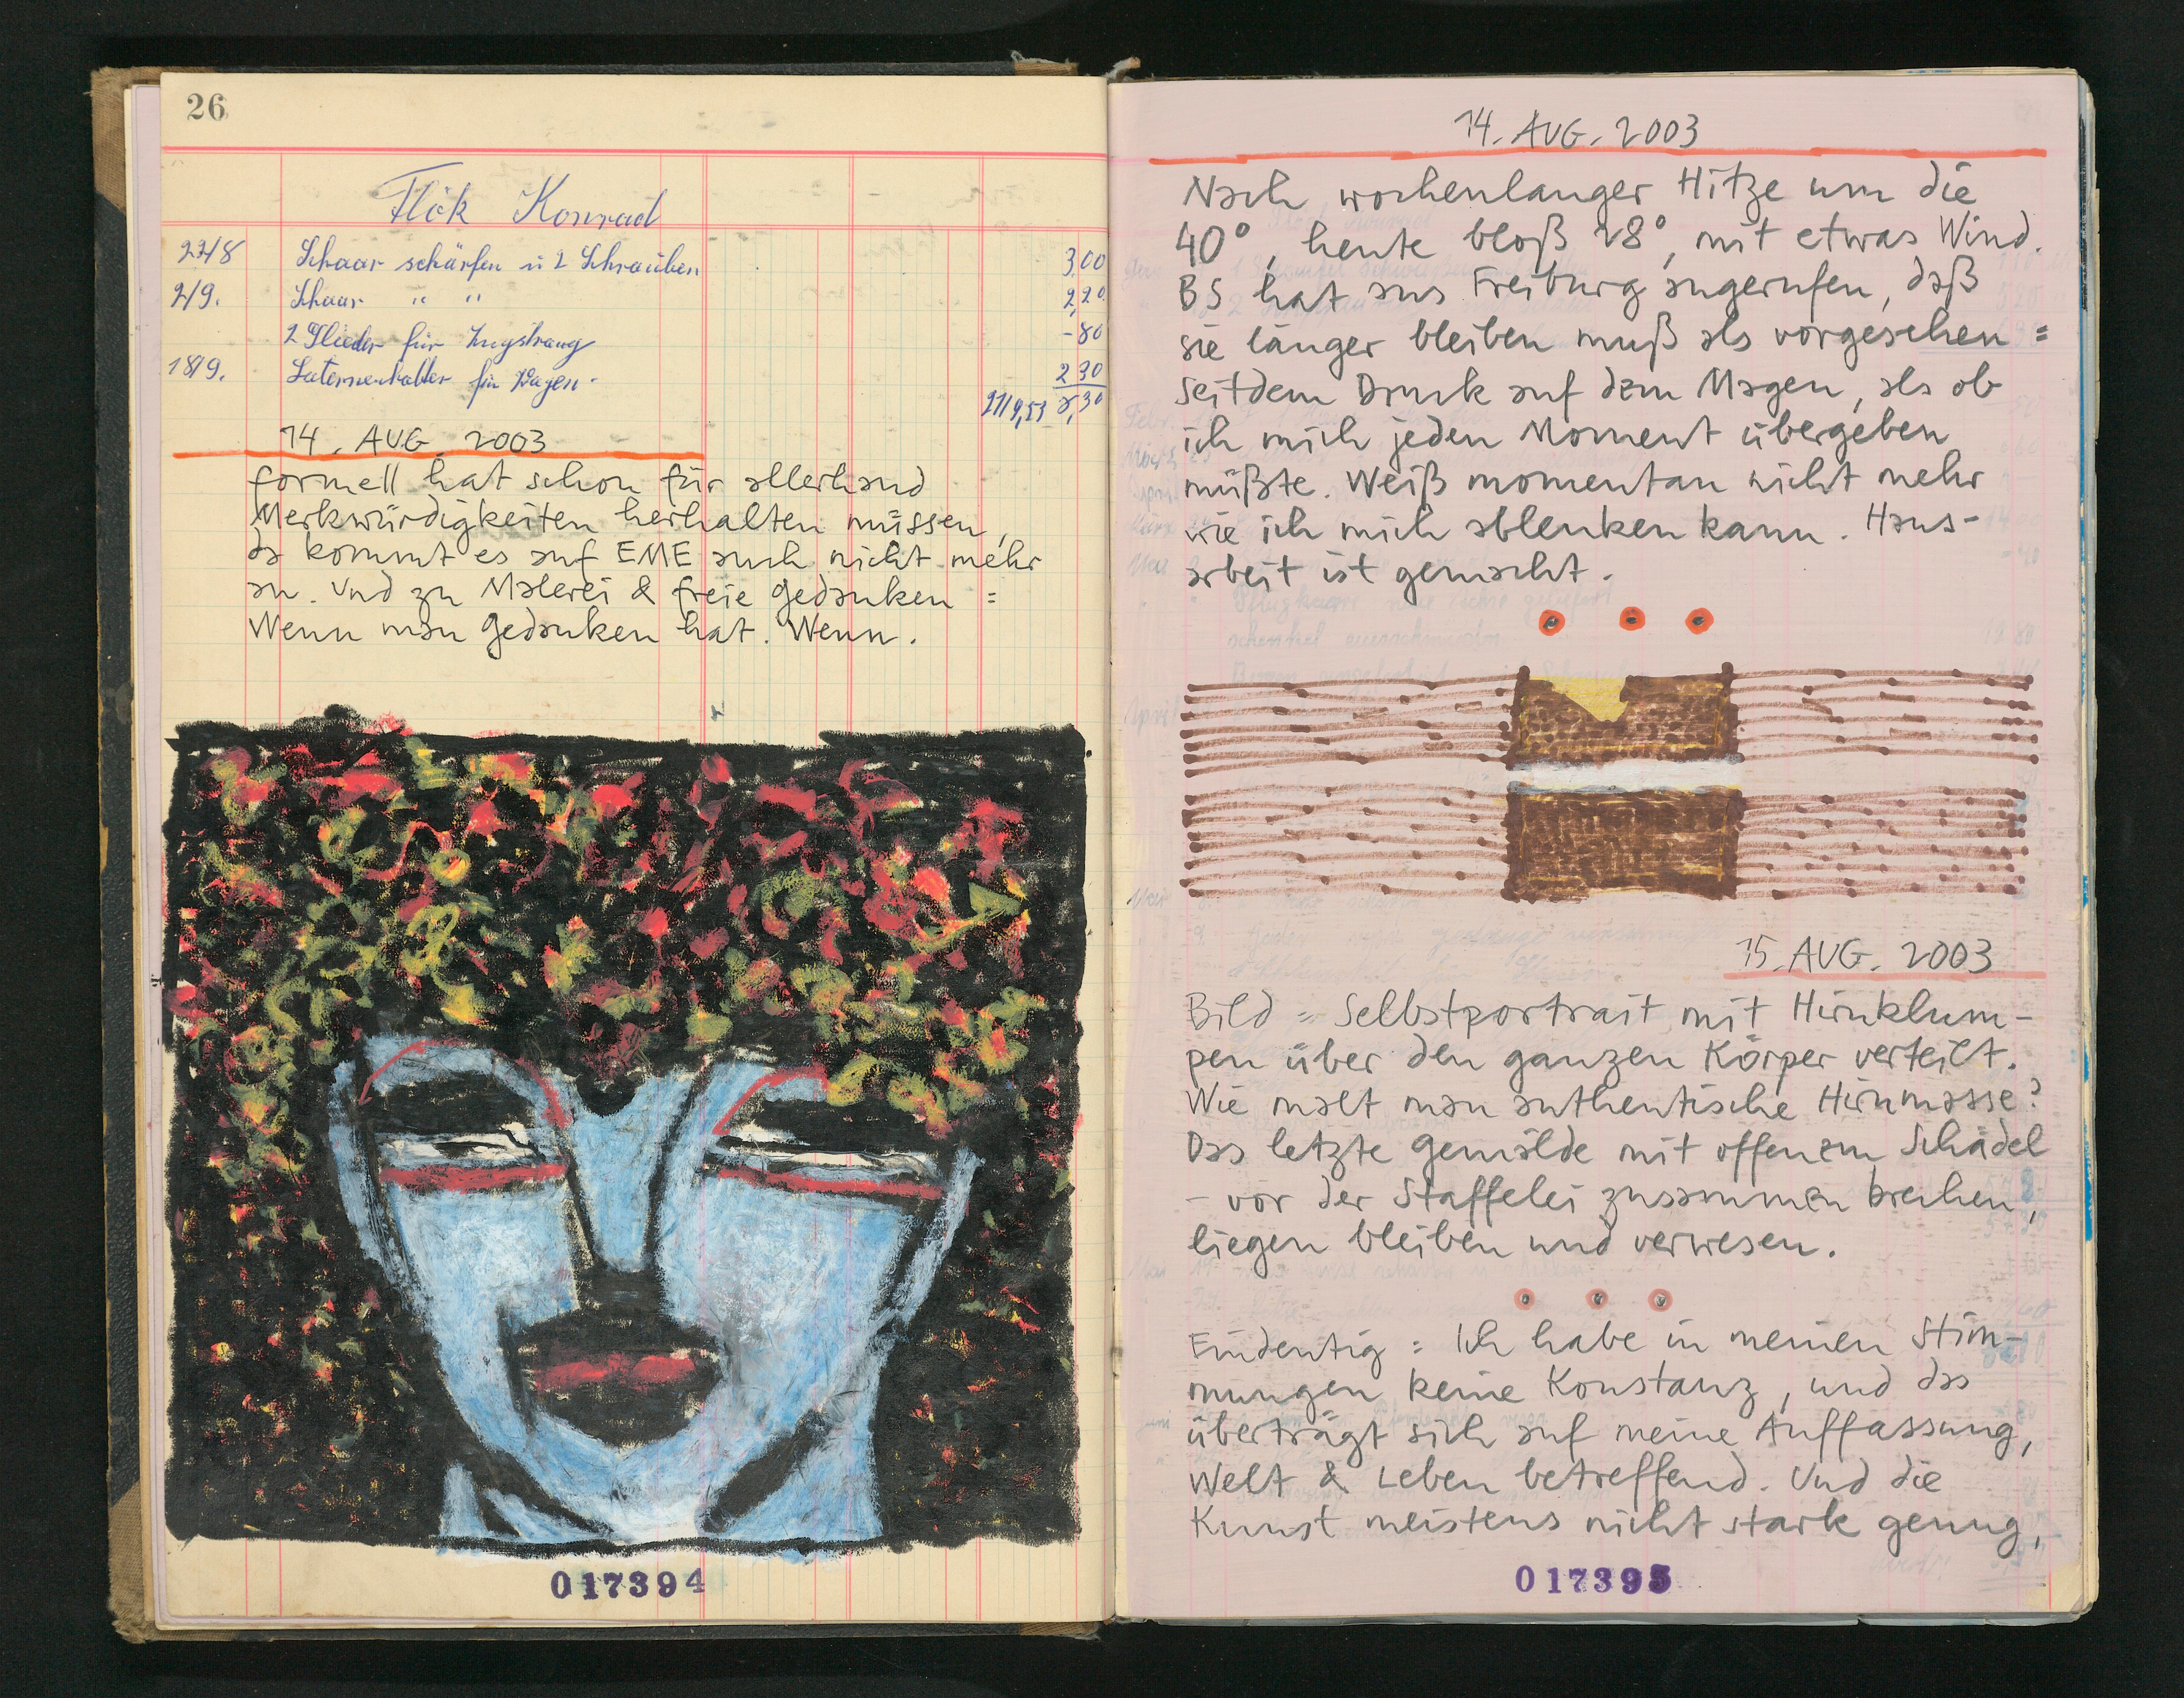 26
Flök Konrad
23/8 Schaar schärfen u 2 Schrauben 3,00
2/9. Schaar " " 2,20
2 Glieder für Zugstrang -80
18/9. Laternenhalter für Wagen. 2 30
8,30
14. AUG. 2003
formell hat schon für allerhand
Merkwürdigkeiten herhalten müssen,
da kommt es auf EME auch nicht mehr
an. Und zu Malerei & freie Gedanken =
Wenn man Gedanken hat. Wenn.
017394
14. AUG. 2003
Nach wochenlanger Hitze um die
40°, heute bloß 28°, mit etwas Wind.
BS hat aus Freiburg angerufen, daß
sie länger bleiben muß als vorgesehen =
seitdem Druck auf dem Magen, als ob
ich mich jeden Moment übergeben
müßte. Weiß momentan nicht mehr
wie ich mich ablenken kann. Haus-
arbeit ist gemacht.
15. AUG. 2003
Bild = Selbstportrait mit Hirnklum-
pen über den ganzen Körper verteilt.
Wie malt man authentische Hirnmasse?
Das letzte Gemälde mit offenem Schädel
- vor der Staffelei zusammen brechen,
liegen bleiben und verwesen.
Eindeutig = Ich habe in meinen Stim-
mungen keine Konstanz, und das
überträgt sich auf meine Auffassung,
Welt & Leben betreffend. Und die
Kunst meistens nicht stark genug,
017395